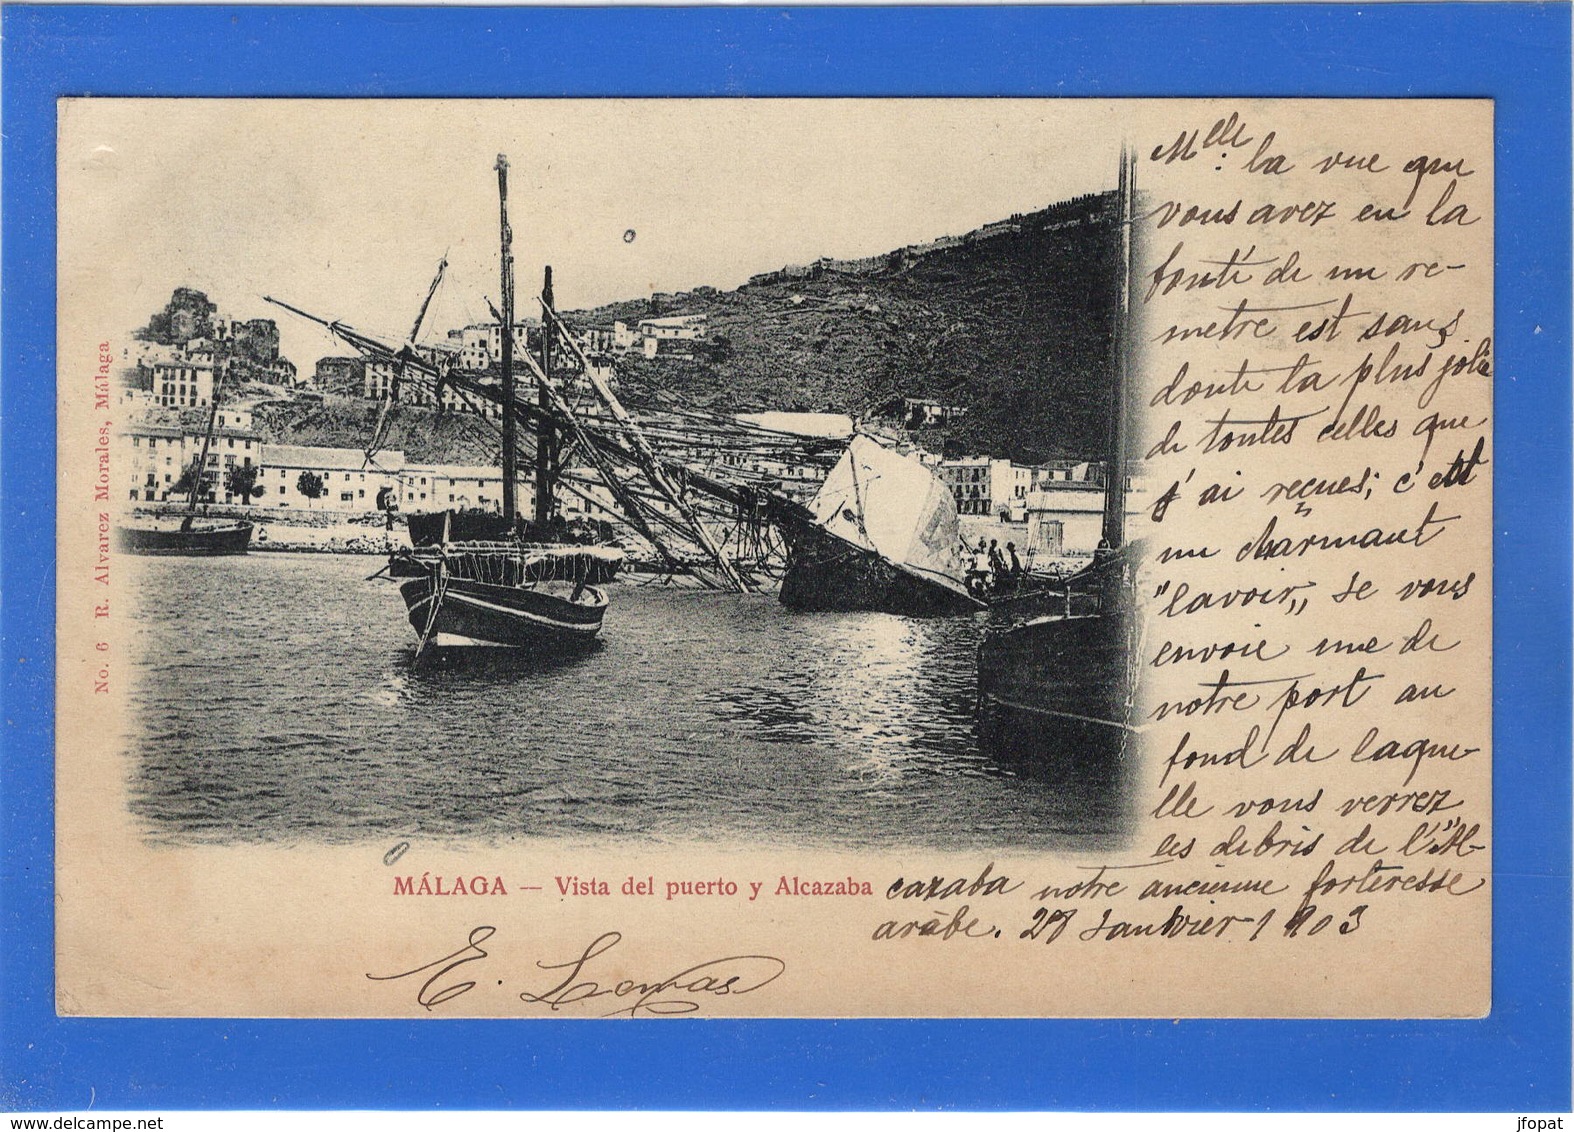 Melle: la vue que
vous avez eu la
bonté de me re-
mettre est sans
doute la plus jolie
de toutes celles que
j'ai reçues; c'est
un charmant
"lavoir„ Je vous
envoie une de
notre port au
fond de laque-
lle vous verrez
les debris de l'"Al-
cazaba notre ancienne forteresse
aràbe. 28 Janvier 1903
MÁLAGA — Vista del puerto y Alcazaba
E.
No. 6 R. Alvarez Morales, Málaga
www.delcampe.net
jfopat